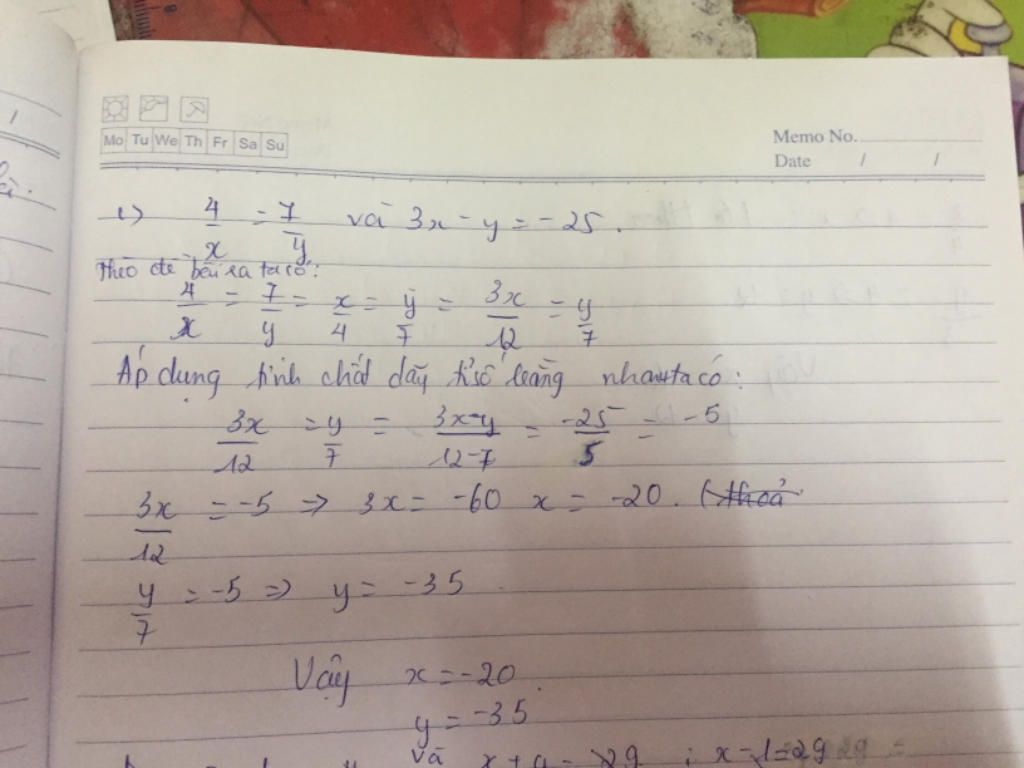 Mo Tu We Th Fr Sa Su
Memo No.
Date / /
1) 4/x = 7/y và 3x - y = -25.
theo đề bài ra ta có:
4/x = 7/y = x/4 = y/7 = 3x/12 = y/7
Áp dụng tính chất dãy tỉ số bằng nhau ta có:
3x/12 = y/7 = 3x-y/12-7 = -25/5 = -5
3x/12 = -5 => 3x = -60 x = -20. (thoả
y/7 = -5 => y = -35
Vậy x = -20.
y = -35
và x + y =